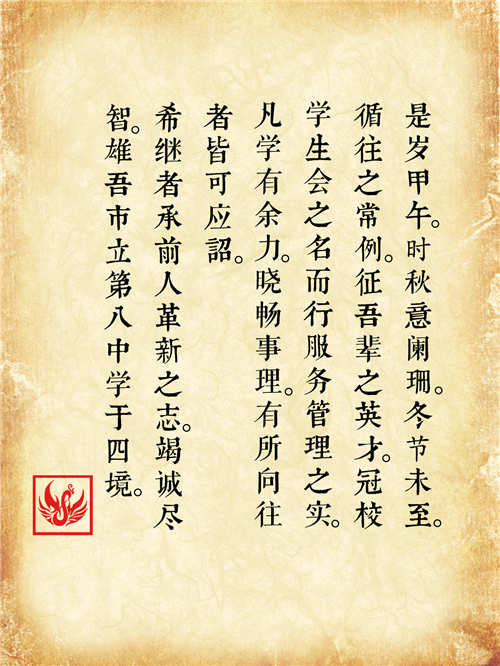 是岁甲午。时秋意阑珊。冬节未至。
循往之常例。征吾辈之英才。冠校
学生会之名而行服务管理之实。
凡学有余力。晓畅事理。有所向往
者皆可应詔。
希继者承前人革新之志。竭诚尽
智。雄吾市立第八中学于四境。